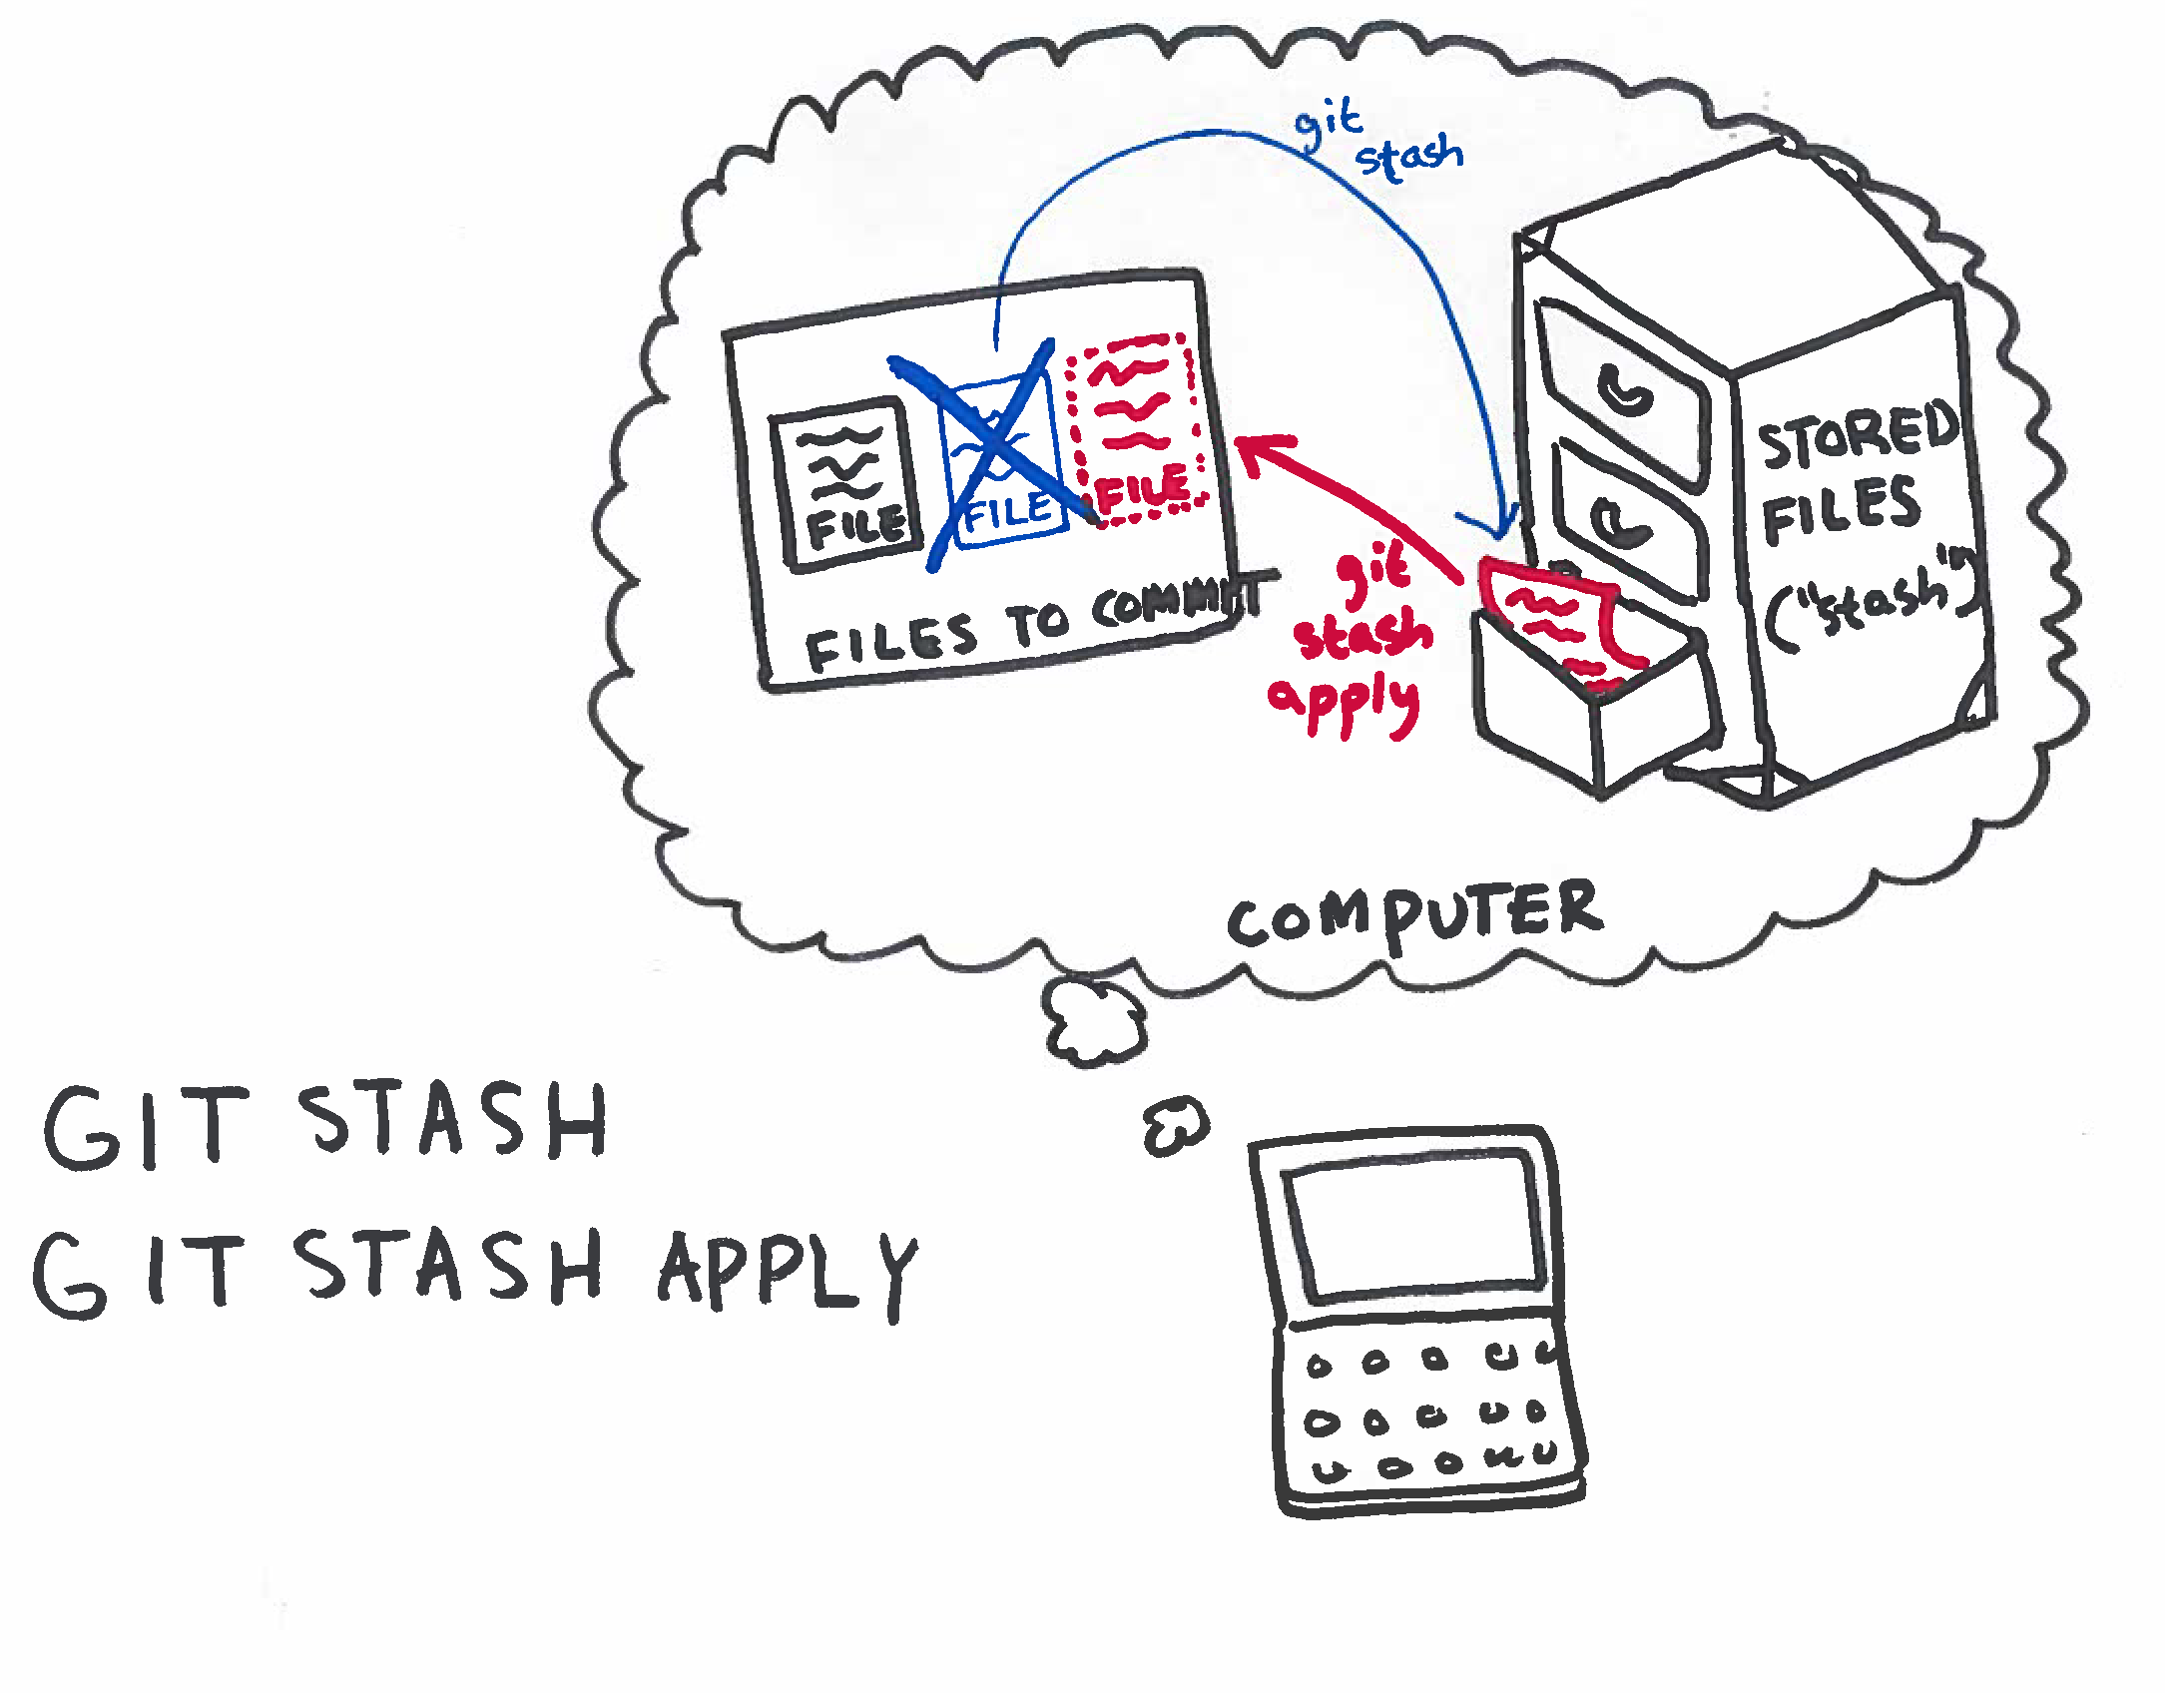 git
stash
FILE
FILE
FILE
FILES TO COMMIT
git
stash
apply
STORED
FILES
("stash")
COMPUTER
GIT STASH
GIT STASH APPLY